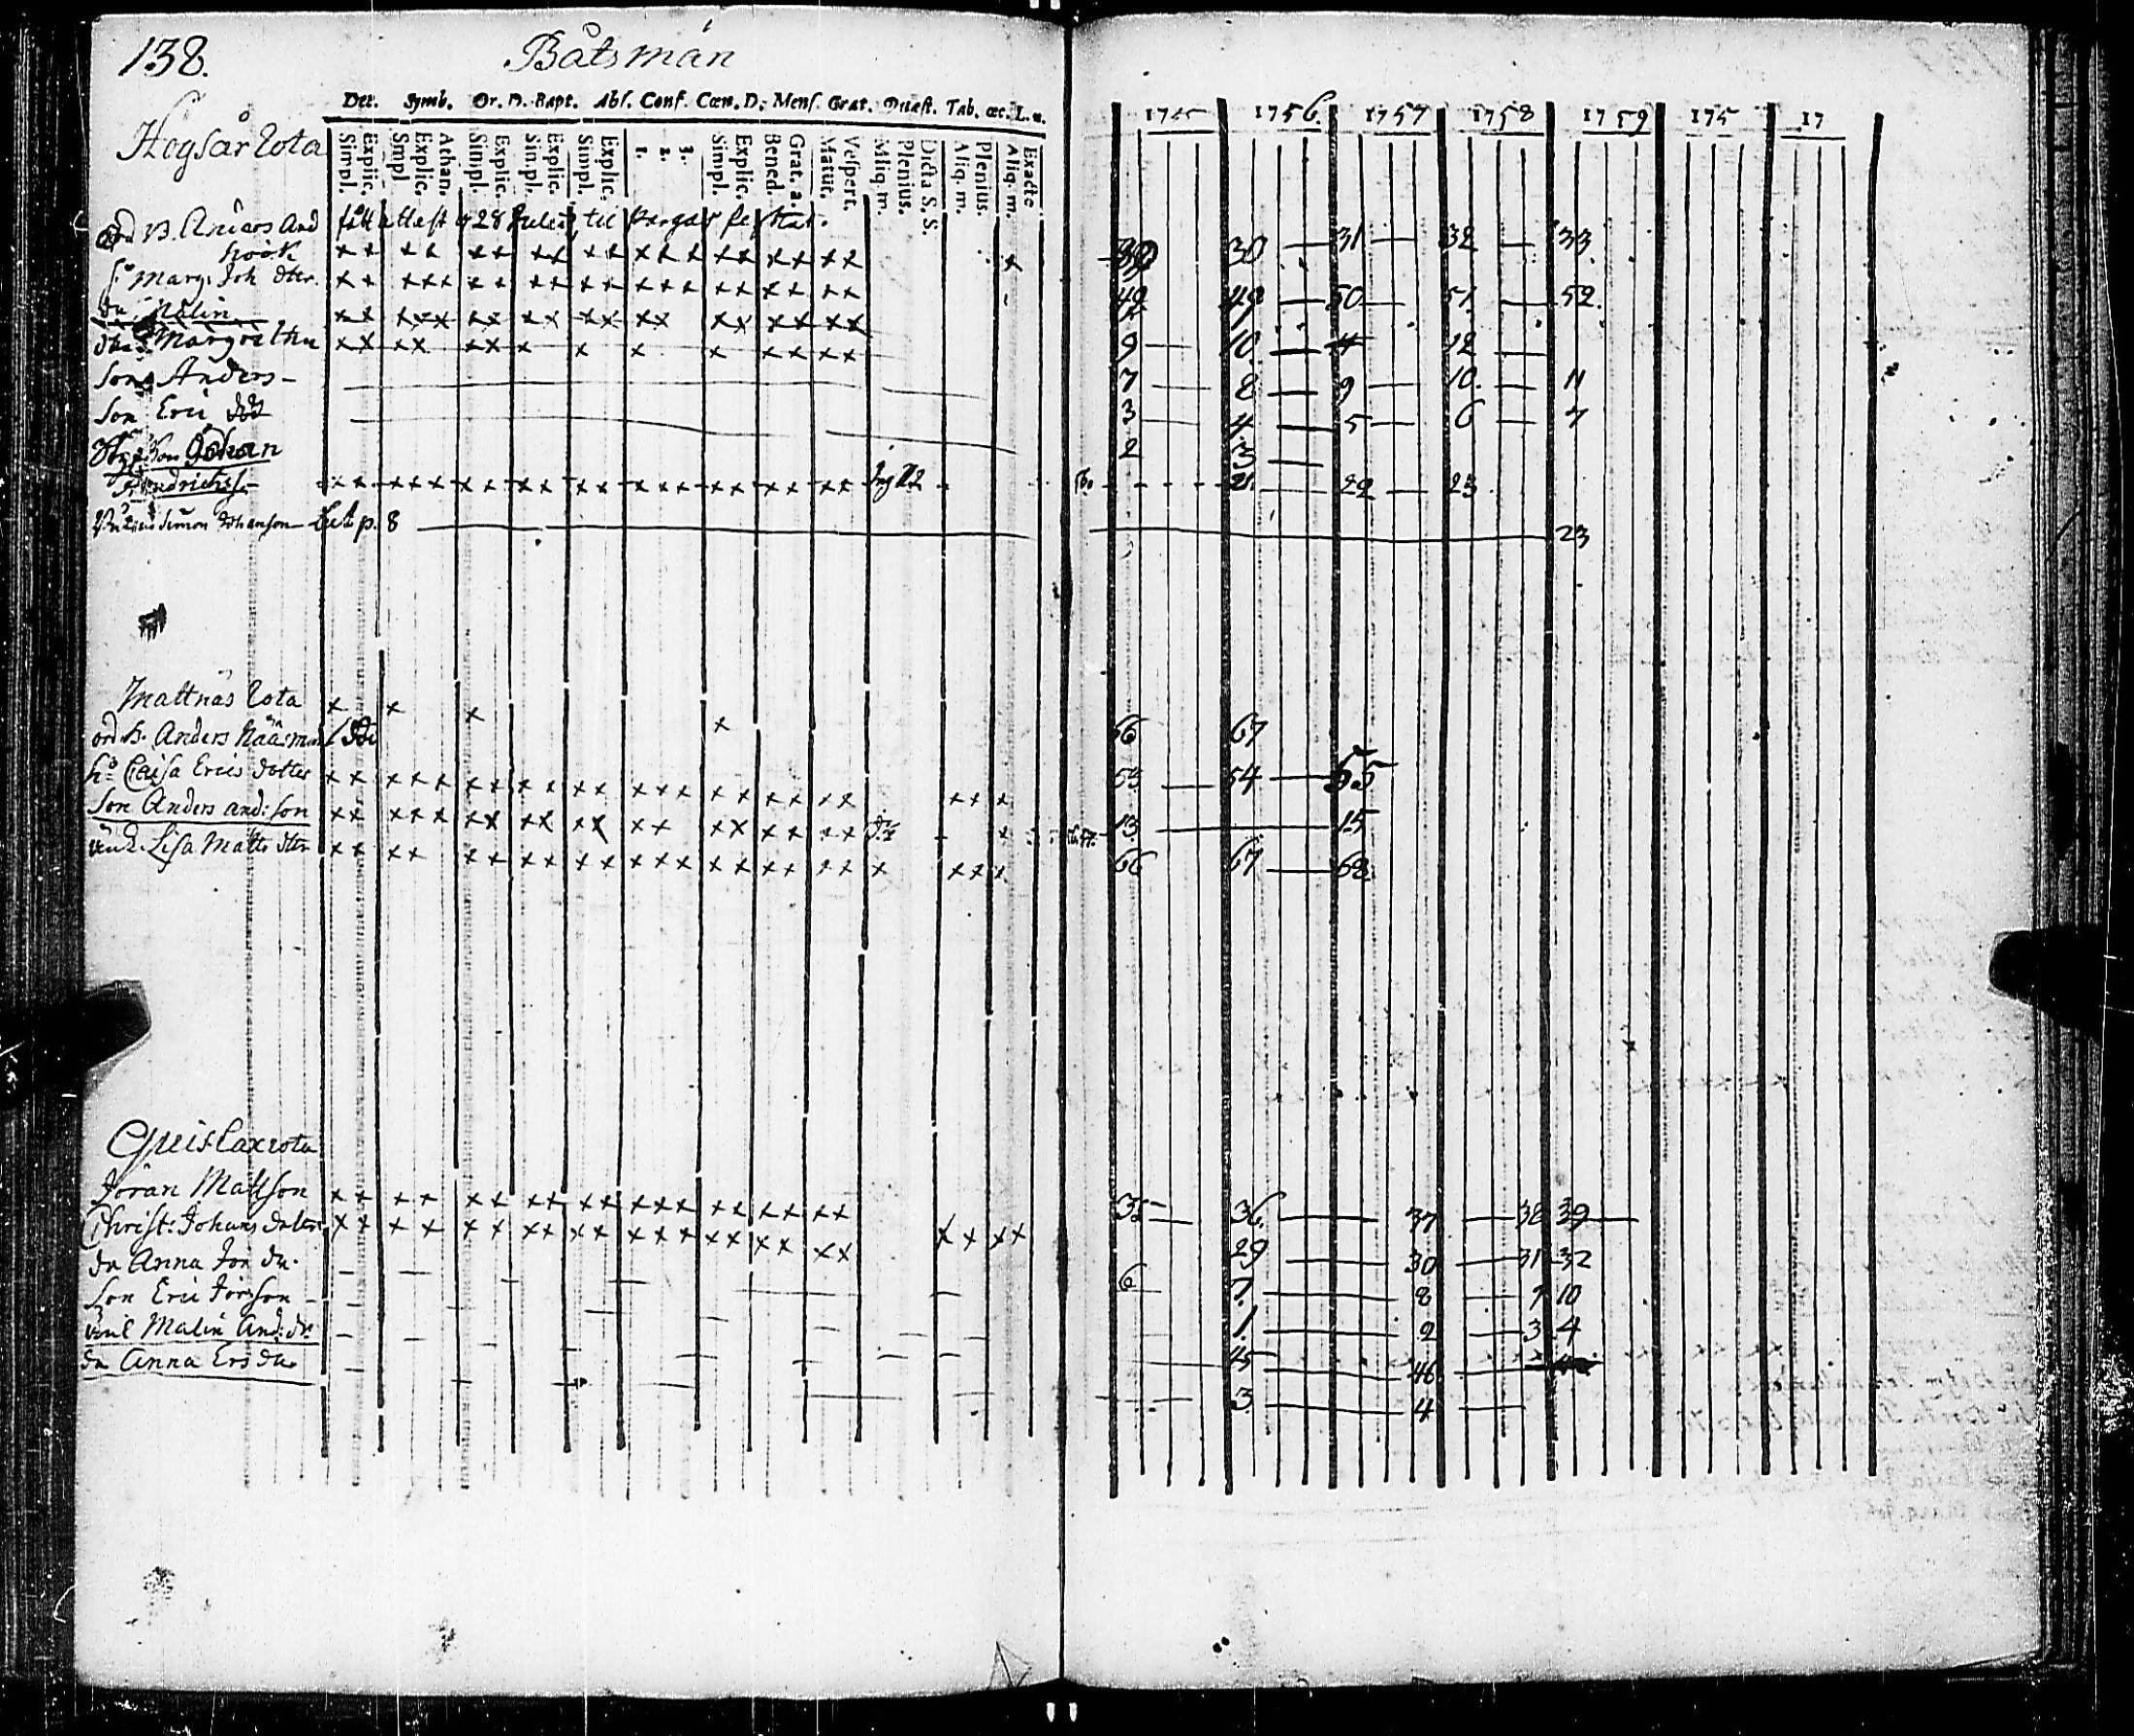 138.
Båtsmän
Dec. Symb. Or. D. Bapt. Abs. Conf. Cœn. D. Mens. Grat. Quæst. Tab. œc. L. a.
Högsår Rota
Simpl. Explic. Smpl Explic. Athan. Simpl. Explic. Simpl. Explic. Simpl. Explic. 1. 2. 3. Simpl. Explic. Bened. Grat. a. Matut. Vespert. Aliq. m. Plenius. Dicta S. S. Aliq. m. Plenius. Aliq. m. Exacte
1756. 1757 1758 1759 175 17
ord B. Anders And fått attest 28 til
30 31 32 33
h: Marg: Joh dter.
49 50 51 52
dr Malin
9 10 12
Margretha
7 8 9 10. 11
Son Anders
3 4 5 6 7
Son Eric död
2 3
Johan
Hendrichss.
21. 22 23
Simon Johanson p. 8
23
Mattnäs Rota
ord. b. Anders Nääsman
66 67
h: Caisa Erics dotter
53 54 55
Son Anders and: son
13 15
Lisa Matts dtr
66 67 68
Greislaxrota
Jöran Mattson
35 36. 37 38 39
Christ: Johans dotter
29 30 31 32
dr Anna Jör dr.
6 7. 8 9 10
Son Eric Jörsson
1 2 3 4
Malin And: dr
45 46
dr Anna Ers dr
3 4